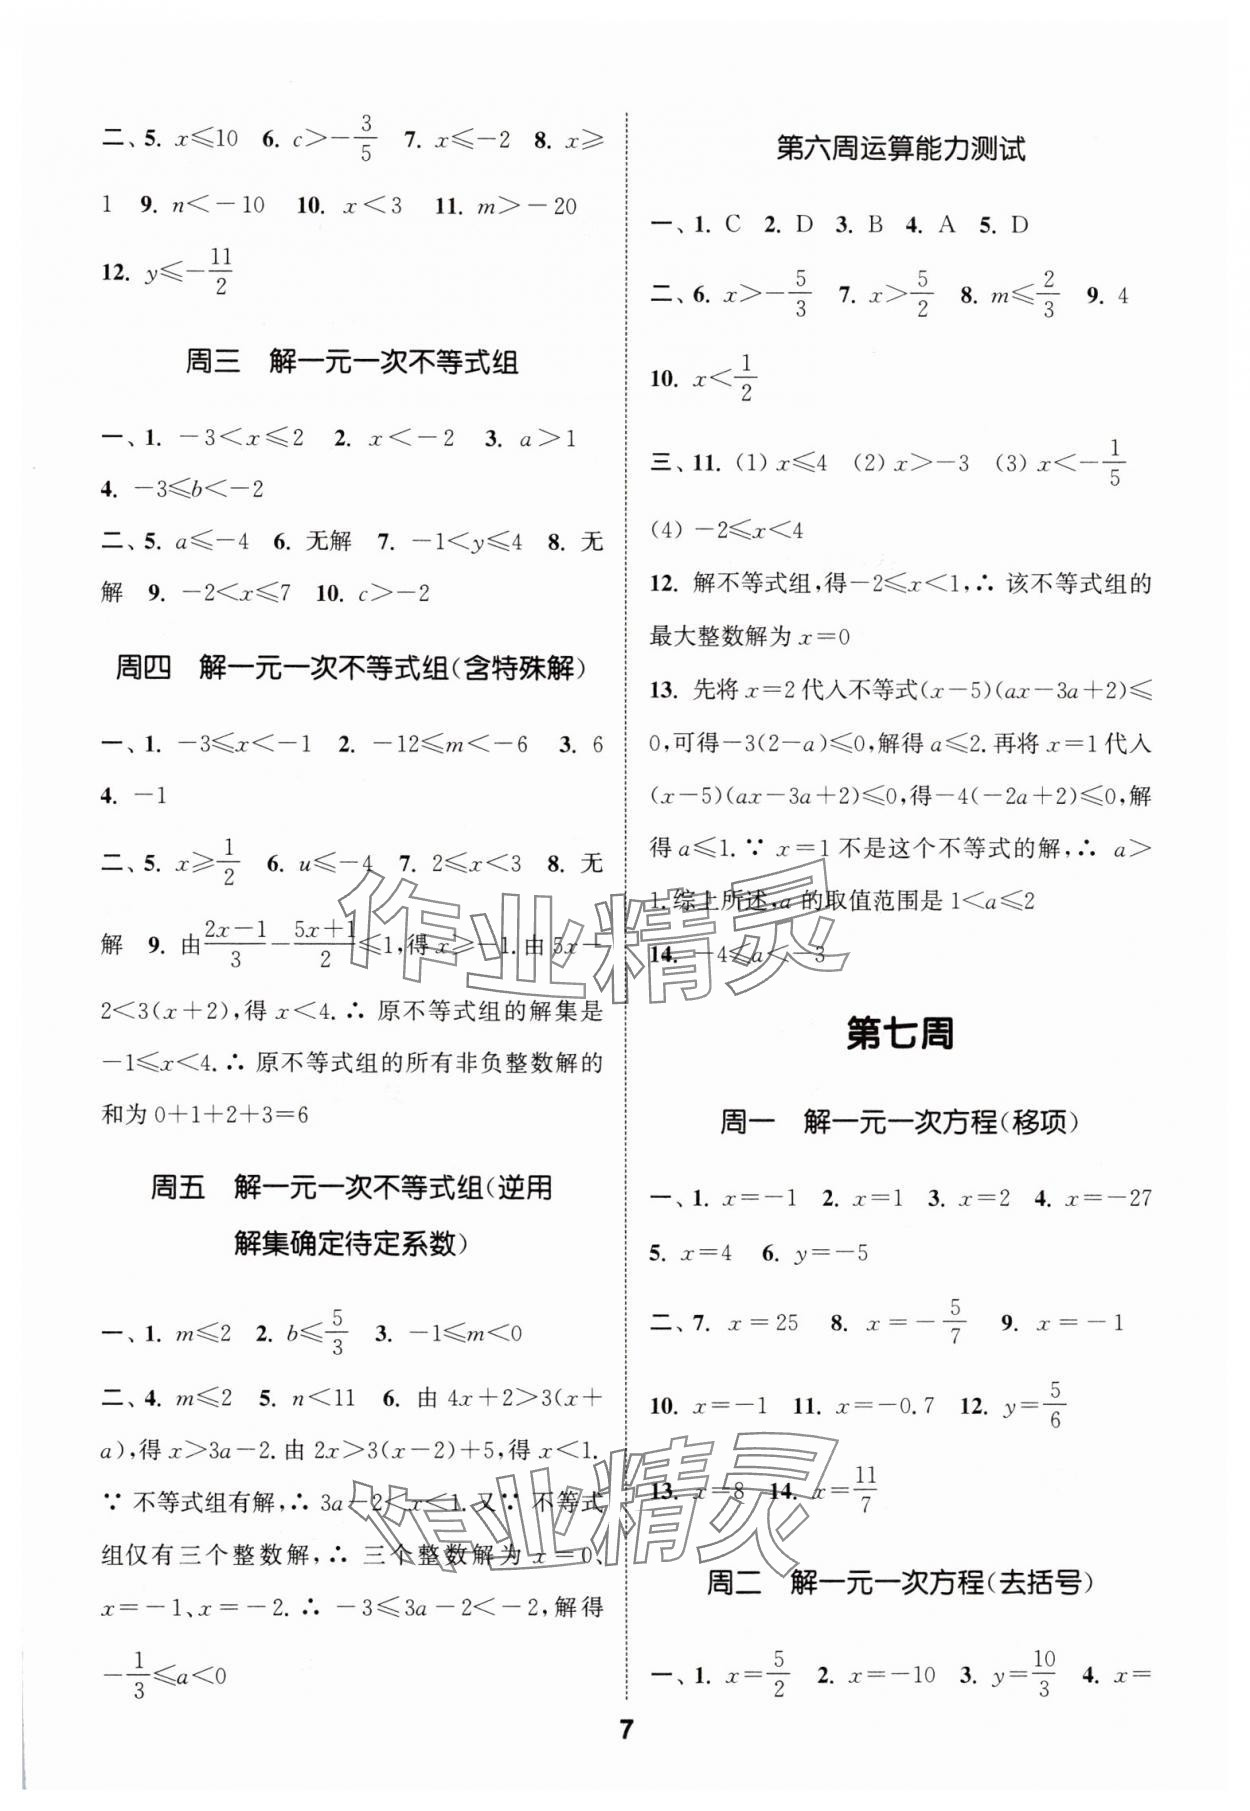 二、5. x≤10 6. c>-3/5 7. x≤-2 8. x≥
1 9. n<-10 10. x<3 11. m>-20
12. y≤-11/2
周三 解一元一次不等式组
一、1. -3<x≤2 2. x<-2 3. a>1
4. -3≤b<-2
二、5. a≤-4 6. 无解 7. -1<y≤4 8. 无
解 9. -2<x≤7 10. c>-2
周四 解一元一次不等式组(含特殊解)
一、1. -3≤x<-1 2. -12≤m<-6 3. 6
4. -1
二、5. x≥1/2 6. u≤-4 7. 2≤x<3 8. 无
解 9. 由(2x-1)/3-(5x+1)/2≤1,得x≥-1.由5x-
2<3(x+2),得x<4.∴ 原不等式组的解集是
-1≤x<4.∴ 原不等式组的所有非负整数解的
和为0+1+2+3=6
周五 解一元一次不等式组(逆用
解集确定待定系数)
一、1. m≤2 2. b≤5/3 3. -1≤m<0
二、4. m≤2 5. n<11 6. 由4x+2>3(x+
a),得x>3a-2.由2x>3(x-2)+5,得x<1.
∵ 不等式组有解,∴ 3a-2<x<1.又∵ 不等式
组仅有三个整数解,∴ 三个整数解为x=0、
x=-1、x=-2.∴ -3≤3a-2<-2,解得
-1/3≤a<0
第六周运算能力测试
一、1. C 2. D 3. B 4. A 5. D
二、6. x>-5/3 7. x>5/2 8. m≤2/3 9. 4
10. x<1/2
三、11. (1) x≤4 (2) x>-3 (3) x<-1/5
(4) -2≤x<4
12. 解不等式组,得-2≤x<1,∴ 该不等式组的
最大整数解为x=0
13. 先将x=2代入不等式(x-5)(ax-3a+2)≤
0,可得-3(2-a)≤0,解得a≤2.再将x=1代入
(x-5)(ax-3a+2)≤0,得-4(-2a+2)≤0,解
得a≤1.∵ x=1不是这个不等式的解,∴ a>
1.综上所述,a的取值范围是1<a≤2
14. -4≤a<-3
第七周
周一 解一元一次方程(移项)
一、1. x=-1 2. x=1 3. x=2 4. x=-27
5. x=4 6. y=-5
二、7. x=25 8. x=-5/7 9. x=-1
10. x=-1 11. x=-0.7 12. y=5/6
13. x=8 14. x=11/7
周二 解一元一次方程(去括号)
一、1. x=5/2 2. x=-10 3. y=10/3 4. x=
7
作业精灵
作业精灵